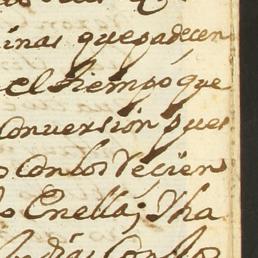 inas que padecen
el tiempo que
conversion pues
con los Vecien
do Enella; Yha